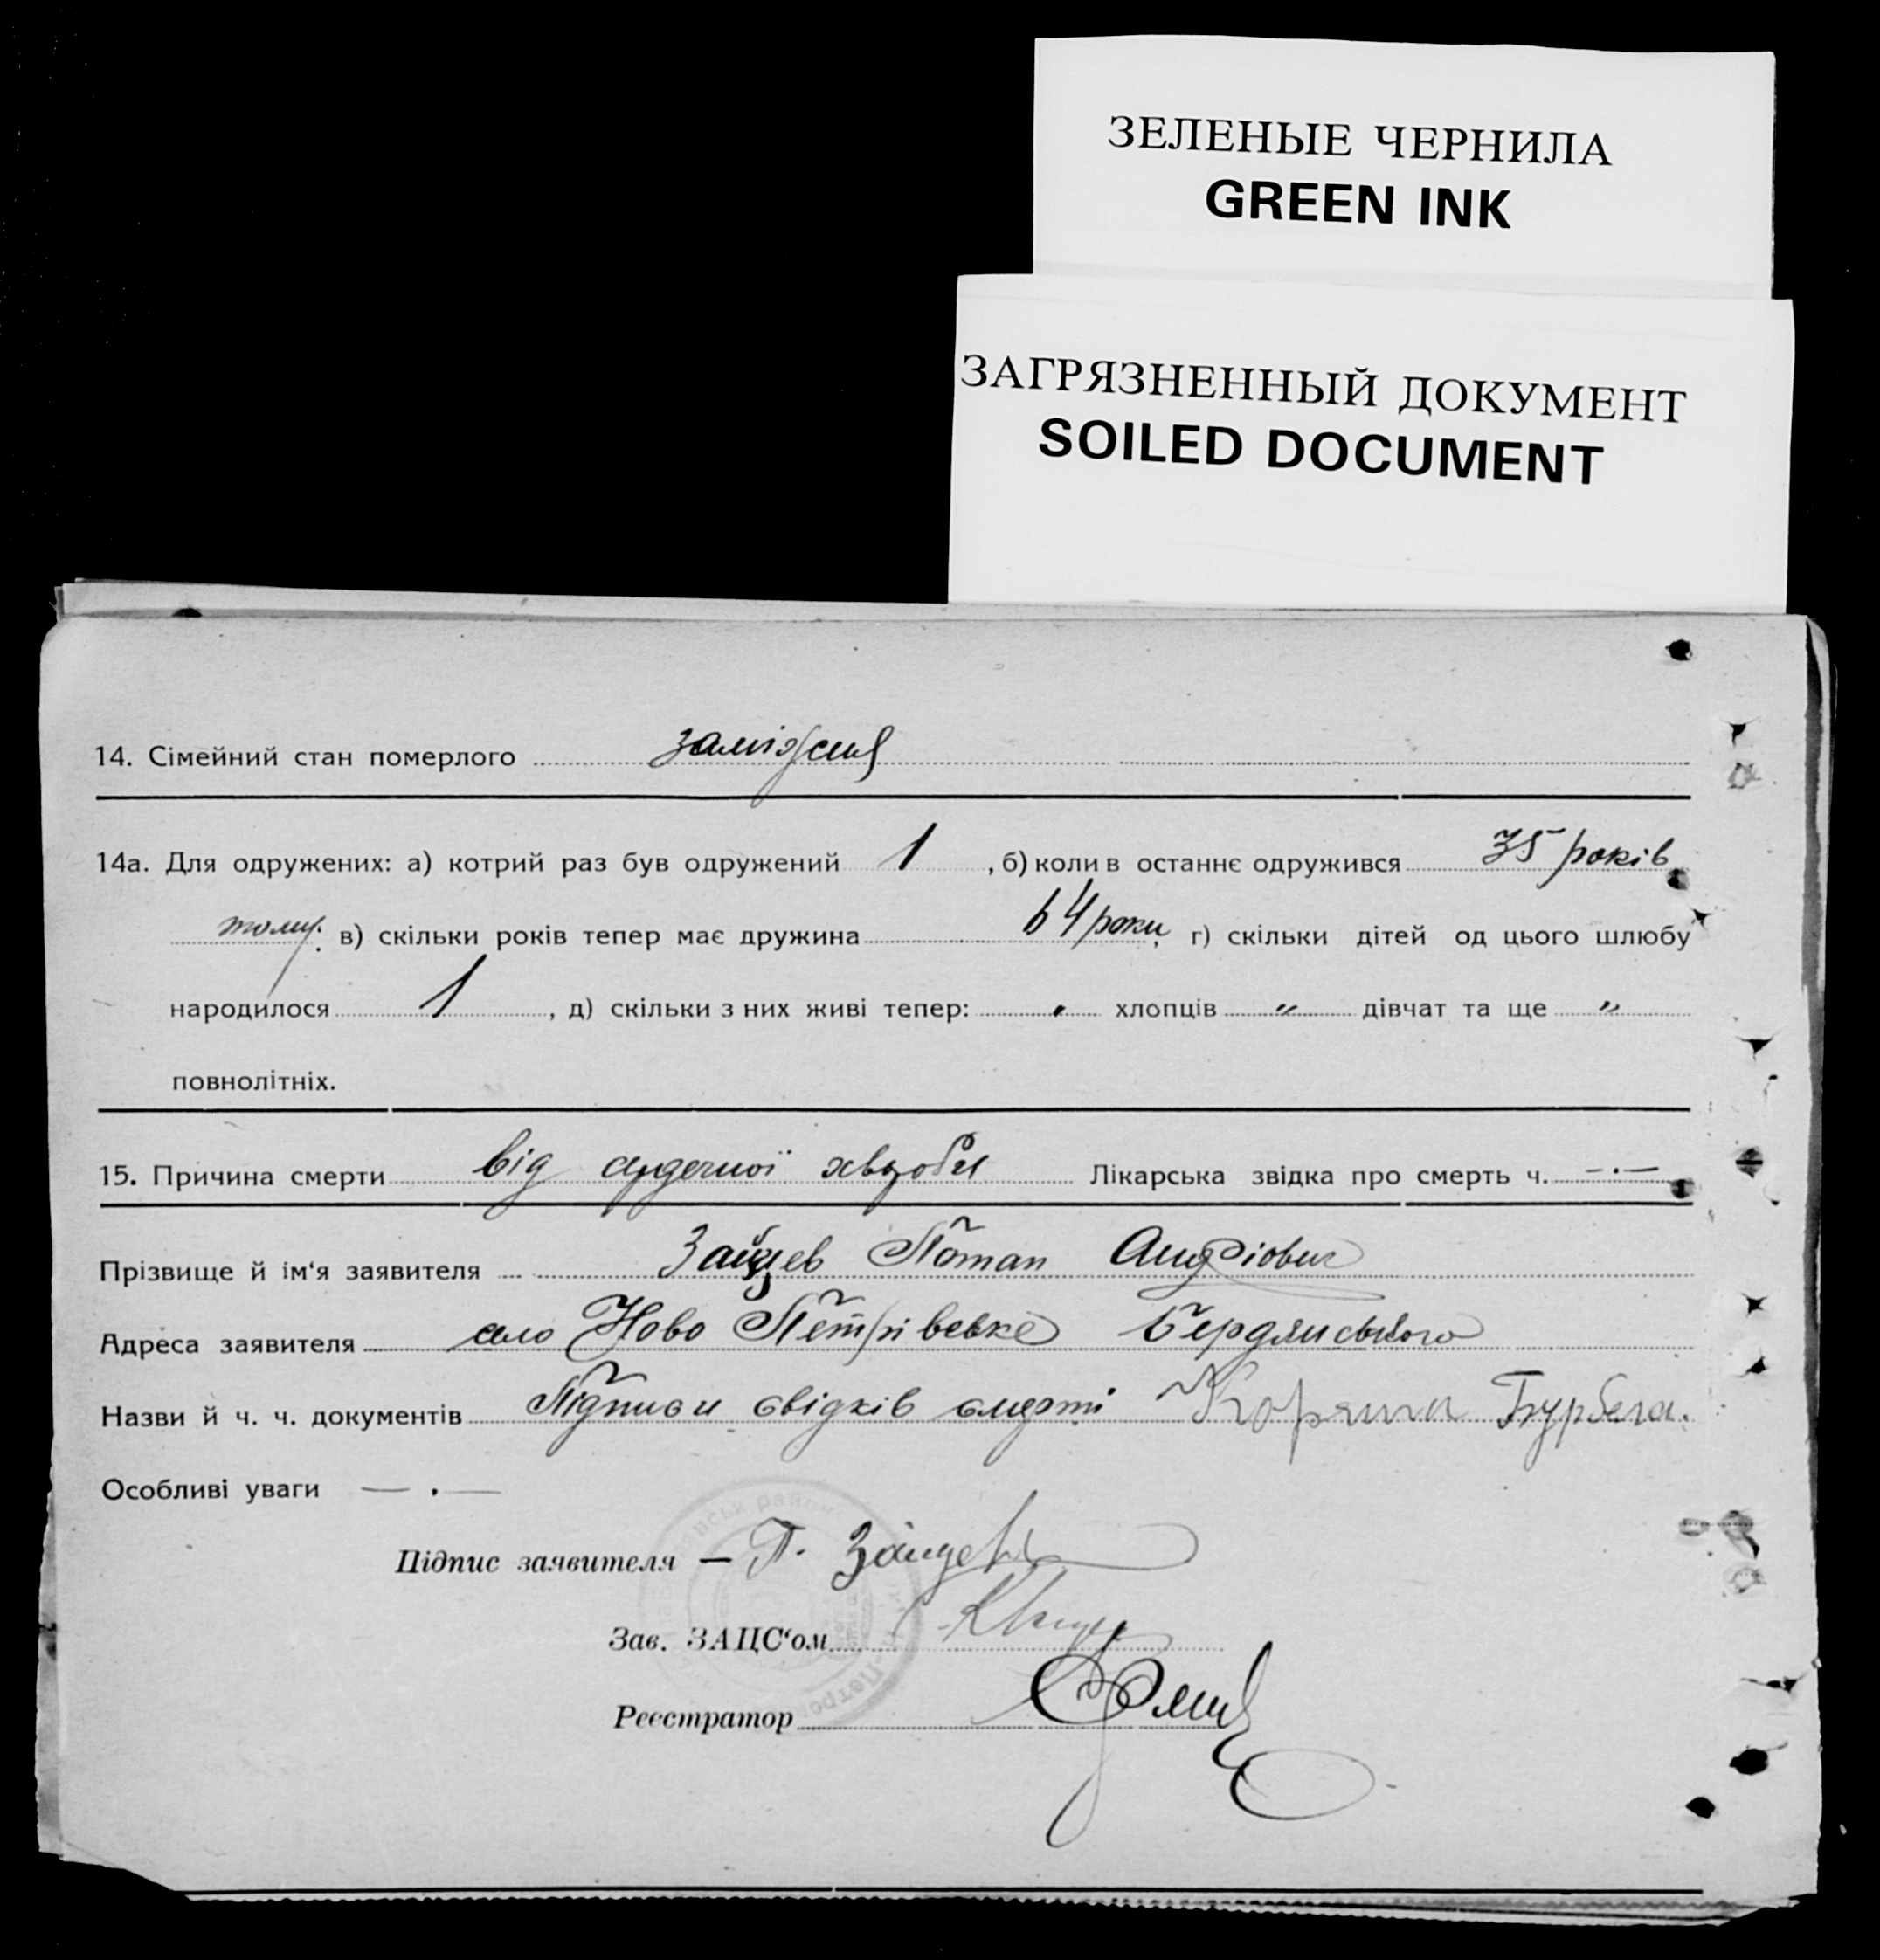 ЗЕЛЕНЫЕ ЧЕРНИЛА
GREEN INK
ЗАГРЯЗНЕННЫЙ ДОКУМЕНТ
SOILED DOCUMENT
14. Сімейний стан померлого заміжня
14а. Для одружених: а) котрий раз був одружений 1, б) коли в останнє одружився 35 років
тому. в) скільки років тепер має дружина 64 роки, г) скільки дітей од цього шлюбу
народилося 1, д) скільки з них живі тепер: „ хлопців „ дівчат та ще „
повнолітніх.
15. Причина смерти від сердечної хвороби Лікарська звідка про смерть ч. —·—
Прізвище й ім'я заявителя Зайцев Потап Андріович
Адреса заявителя село Ново Петрівевке Бердянського
Назви й ч. ч. документів Підписи свідків смерті Коряка Бурбега.
Особливі уваги — . —
Підпис заявителя — П. Зайцев
Зав. ЗАЦС'ом
Реєстратор